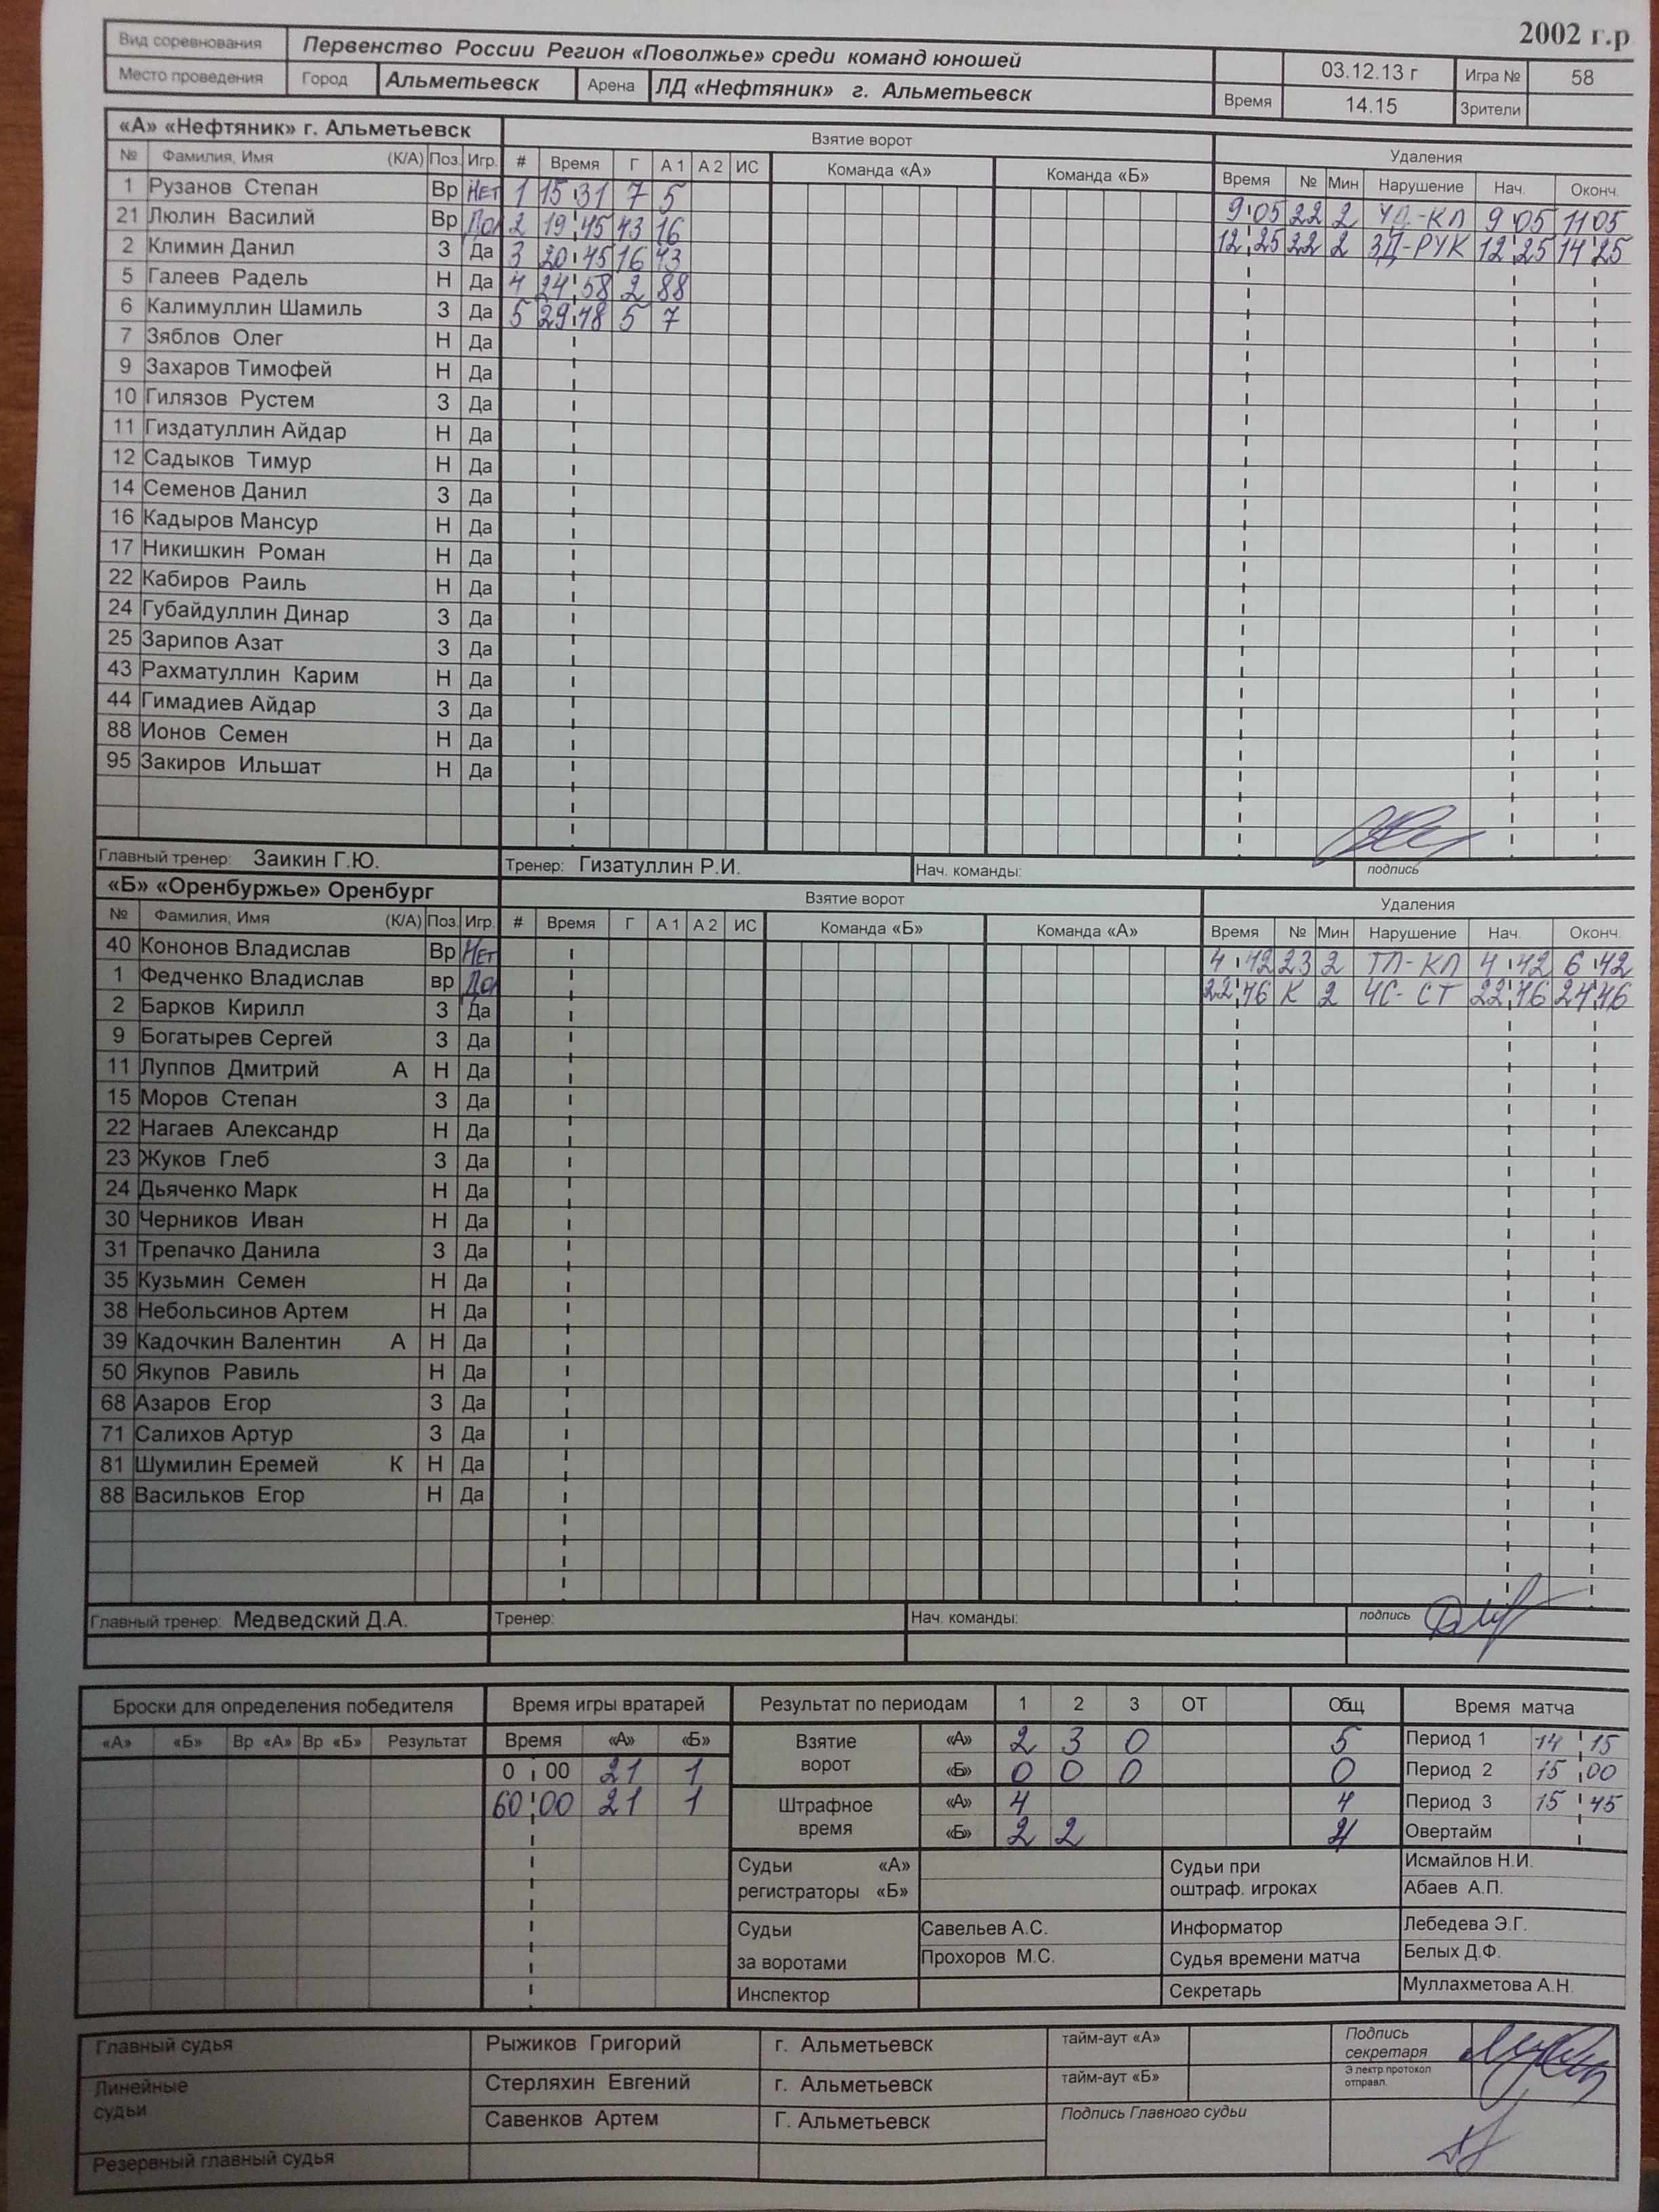 2002 г.р
Вид соревнования Первенство России Регион «Поволжье» среди команд юношей 03.12.13 г Игра № 58
Место проведения Город Альметьевск Арена ЛД «Нефтяник» г. Альметьевск Время 14.15 Зрители
«А» «Нефтяник» г. Альметьевск Взятие ворот Удаления
№ Фамилия, Имя (К/А) Поз. Игр. # Время Г А 1 А 2 ИС Команда «А» Команда «Б» Время № Мин Нарушение Нач. Оконч.
1 Рузанов Степан Вр Нет 1 15 31 7 5 9 05 22 2 УД-КЛ 9 05 11 05
21 Люлин Василий Вр Да 2 19 45 43 16 12 25 22 2 ЗД-РУК 12 25 14 25
2 Климин Данил З Да 3 20 45 16 43
5 Галеев Радель Н Да 4 24 58 2 88
6 Калимуллин Шамиль З Да 5 29 18 5 7
7 Зяблов Олег Н Да
9 Захаров Тимофей Н Да
10 Гилязов Рустем З Да
11 Гиздатуллин Айдар Н Да
12 Садыков Тимур Н Да
14 Семенов Данил З Да
16 Кадыров Мансур Н Да
17 Никишкин Роман Н Да
22 Кабиров Раиль Н Да
24 Губайдуллин Динар З Да
25 Зарипов Азат З Да
43 Рахматуллин Карим Н Да
44 Гимадиев Айдар З Да
88 Ионов Семен Н Да
95 Закиров Ильшат Н Да
Главный тренер: Заикин Г.Ю. Тренер: Гизатуллин Р.И. Нач. команды: подпись
«Б» «Оренбуржье» Оренбург Взятие ворот Удаления
№ Фамилия, Имя (К/А) Поз. Игр. # Время Г А 1 А 2 ИС Команда «Б» Команда «А» Время № Мин Нарушение Нач. Оконч.
40 Кононов Владислав Вр Нет 4 42 23 2 ТЛ-КЛ 4 42 6 42
1 Федченко Владислав вр Да 22 46 К 2 ЧС-СТ 22 46 24 46
2 Барков Кирилл З Да
9 Богатырев Сергей З Да
11 Луппов Дмитрий А Н Да
15 Моров Степан З Да
22 Нагаев Александр Н Да
23 Жуков Глеб З Да
24 Дьяченко Марк Н Да
30 Черников Иван Н Да
31 Трепачко Данила З Да
35 Кузьмин Семен Н Да
38 Небольсинов Артем Н Да
39 Кадочкин Валентин А Н Да
50 Якупов Равиль Н Да
68 Азаров Егор З Да
71 Салихов Артур З Да
81 Шумилин Еремей К Н Да
88 Васильков Егор Н Да
Главный тренер: Медведский Д.А. Тренер: Нач. команды: подпись
Броски для определения победителя Время игры вратарей Результат по периодам 1 2 3 ОТ Общ Время матча
«А» «Б» Вр «А» Вр «Б» Результат Время «А» «Б» Взятие ворот «А» 2 3 0 5 Период 1 14 15
0 00 21 1 «Б» 0 0 0 0 Период 2 15 00
60 00 21 1 Штрафное время «А» 4 4 Период 3 15 45
«Б» 2 2 4 Овертайм
Судьи «А» Судьи при Исмайлов Н.И.
регистраторы «Б» оштраф. игроках Абаев А.П.
Судьи Савельев А.С. Информатор Лебедева Э.Г.
за воротами Прохоров М.С. Судья времени матча Белых Д.Ф.
Инспектор Секретарь Муллахметова А.Н.
Главный судья Рыжиков Григорий г. Альметьевск тайм-аут «А» Подпись секретаря
Линейные судьи Стерляхин Евгений г. Альметьевск тайм-аут «Б» Электр.протокол отправл.
Савенков Артем Г. Альметьевск Подпись Главного судьи
Резервный главный судья